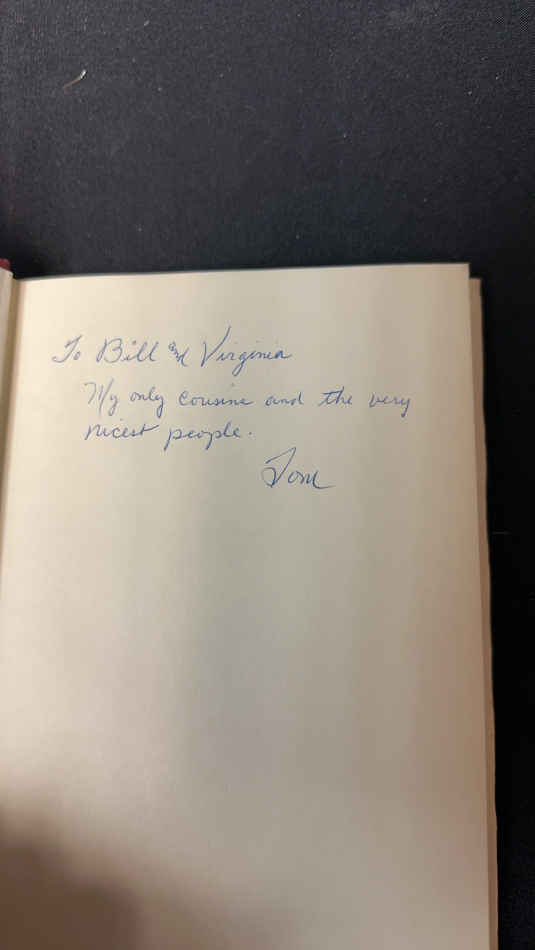 To Bill and Virginia
My only cousins and the very
nicest people.
Tom